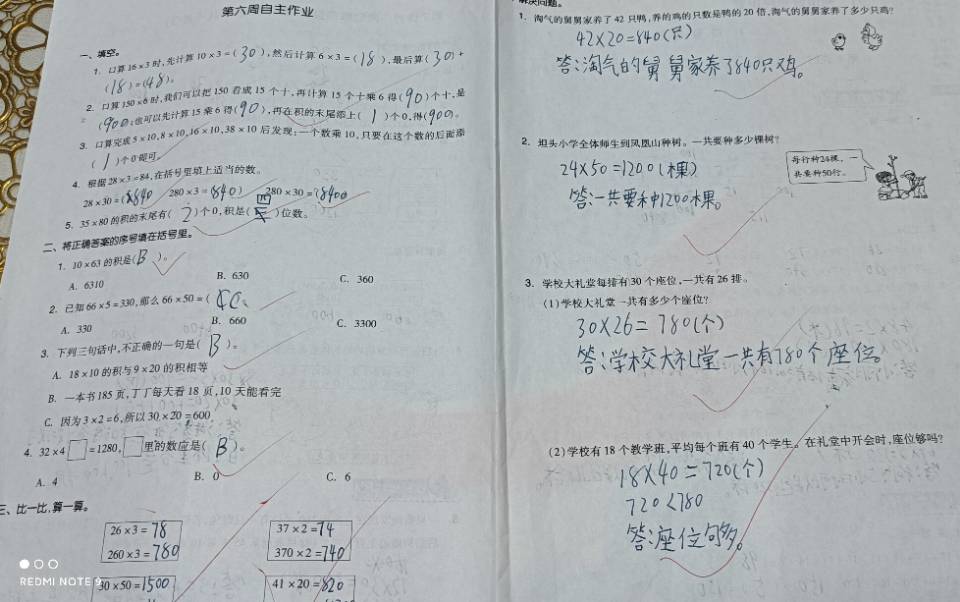 第六周自主作业
一、填空。
1. 口算16×3时,先计算10×3=(30),然后计算6×3=(18),最后算(30)+
(18)=(48)。
2. 口算150×6时,我们可以把150看成15个十,再计算15个十乘6得(90)个十,是
(900);也可以先计算15乘6得(90),再在积的末尾添上(1)个0,得(900)。
3. 口算完成5×10,8×10,16×10,38×10后发现:一个数乘10,只要在这个数的后面添
(1)个0即可。
4. 根据28×3=84,在括号里填上适当的数。
28×30=(840) 280×3=(840) 280×30=(8400)
5. 35×80的积的末尾有(2)个0,积是(四)位数。
二、将正确答案的序号填在括号里。
1. 10×63的积是(B)。
A. 6310 B. 630 C. 360
2. 已知66×5=330,那么66×50=(C)。
A. 330 B. 660 C. 3300
3. 下列三句话中,不正确的一句是(B)。
A. 18×10的积与9×20的积相等
B. 一本书185页,丁丁每天看18页,10天能看完
C. 因为3×2=6,所以30×20=600
4. 32×4□=1280,□里的数应是(B)。
A. 4 B. 0 C. 6
三、比一比,算一算。
26×3=78 37×2=74
260×3=780 370×2=740
30×50=1500 41×20=820
REDMI NOTE 9
解决问题。
1. 淘气的舅舅家养了42只鸭,养的鸡的只数是鸭的20倍,淘气的舅舅家养了多少只鸡?
42×20=840(只)
答:淘气的舅舅家养了840只鸡。
2. 坦头小学全体师生到凤凰山种树。一共要种多少棵树?
每行种24棵,一
共要种50行。
24×50=1200(棵)
答:一共要种1200棵。
3. 学校大礼堂每排有30个座位,一共有26排。
(1)学校大礼堂一共有多少个座位?
30×26=780(个)
答:学校大礼堂一共有780个座位。
(2)学校有18个教学班,平均每个班有40个学生。在礼堂中开会时,座位够吗?
18×40=720(个)
720<780
答:座位句多。